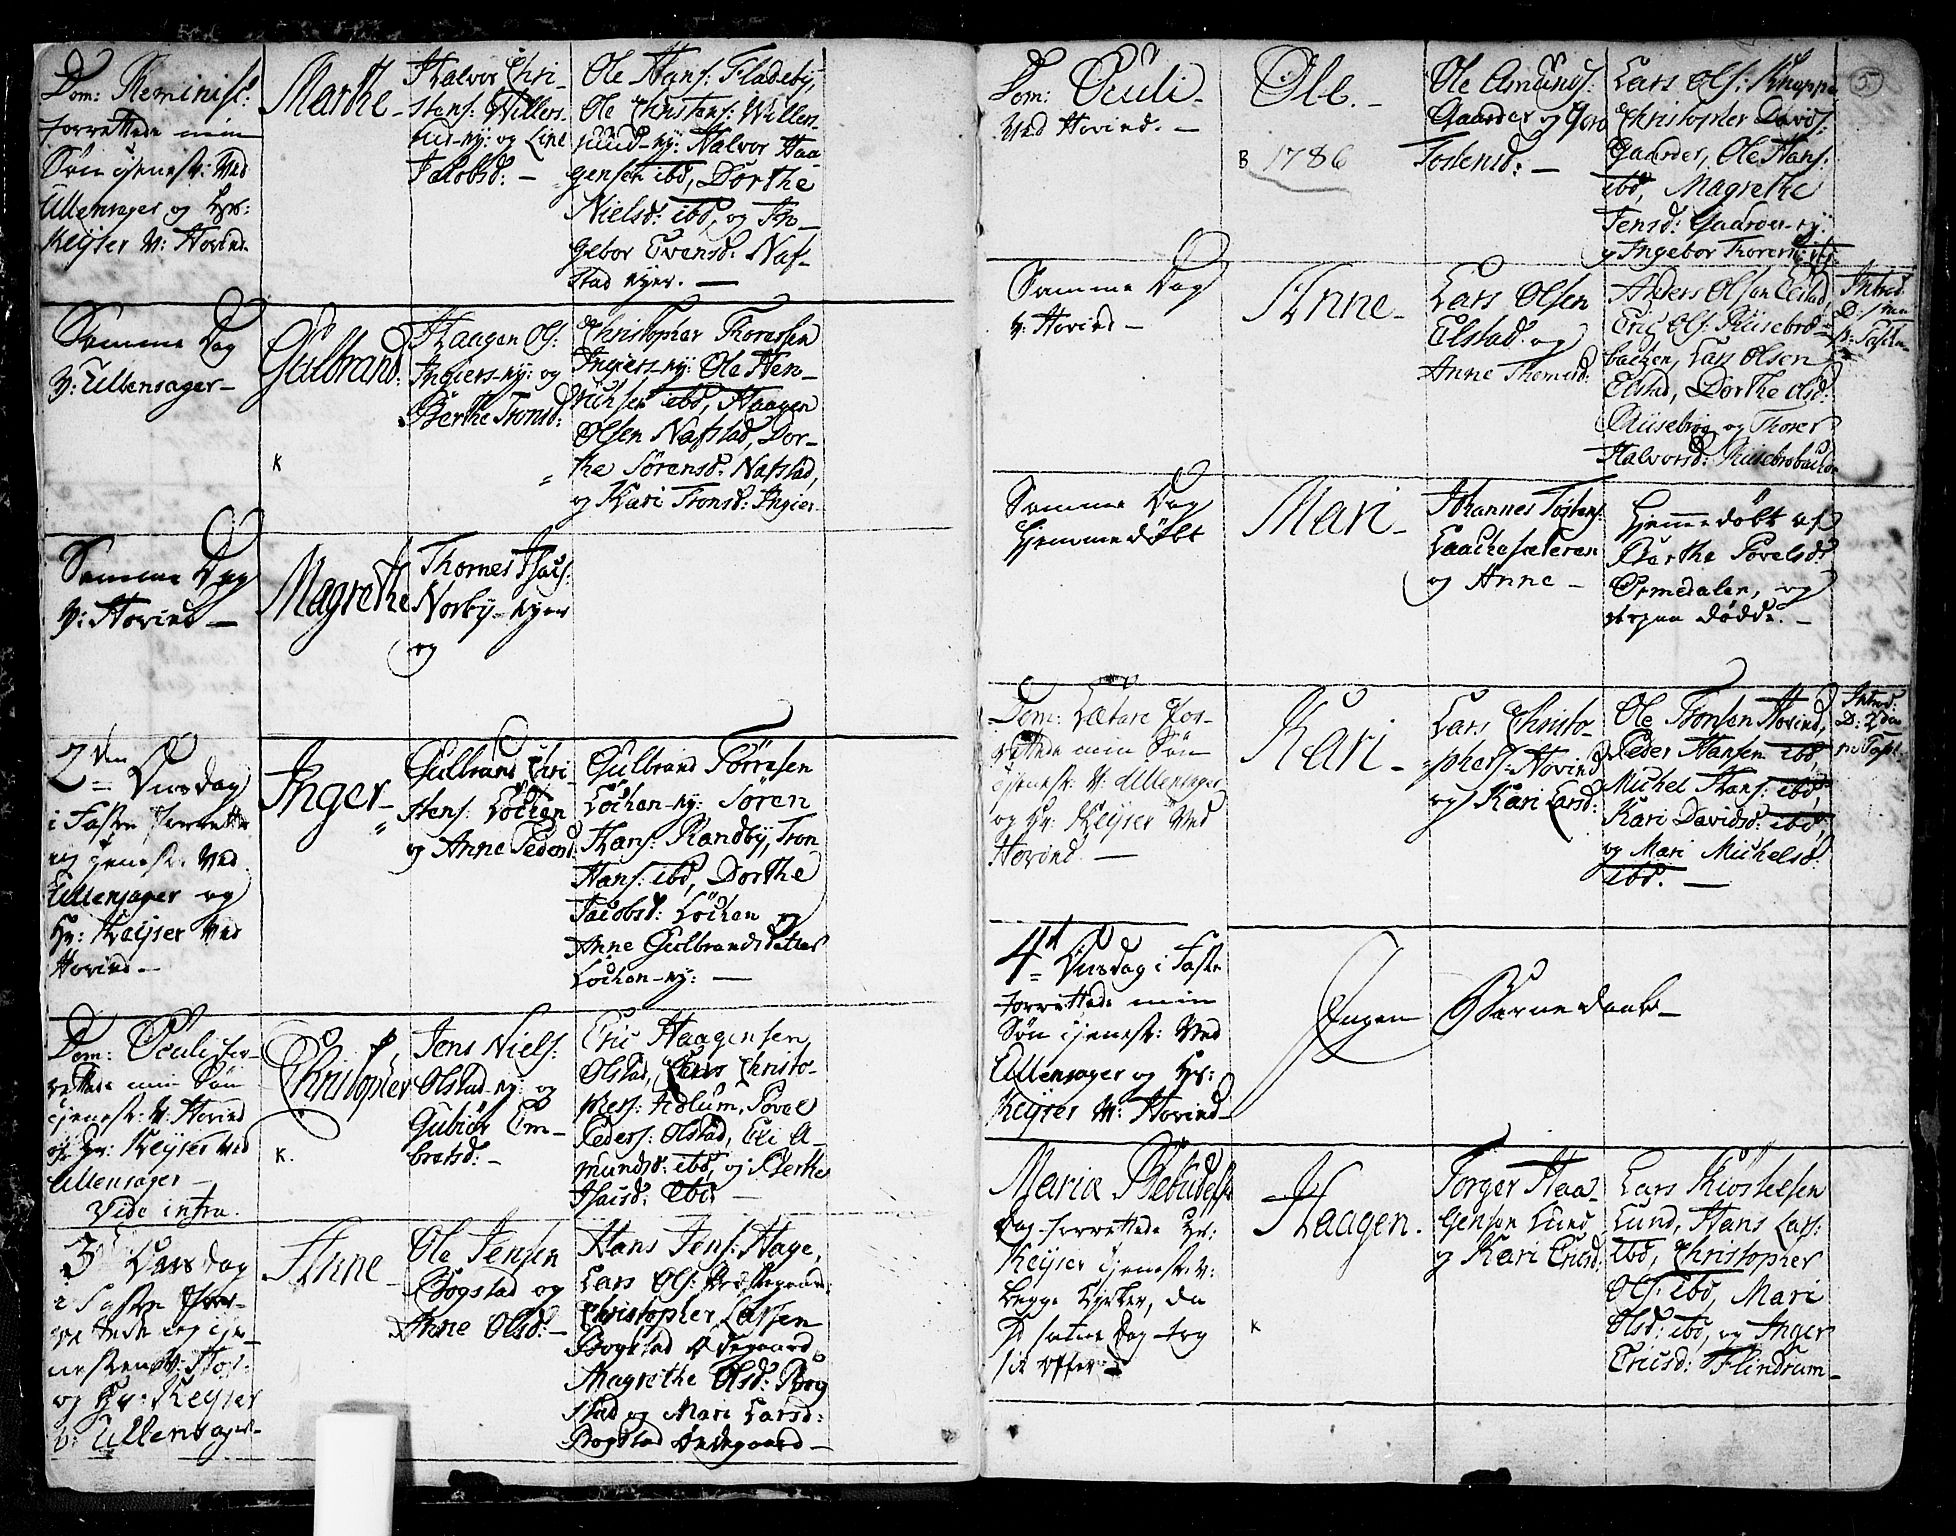 Dom: Reminisc:
forrettede min
Søn tjenest: ved
Ullensager og Hr:
Keyser v: Hovind.
Marthe
Halvor Chri-
stens: Willers-
rud-ey: og Line
Jacobsd: -
Ole Hans: Fladeby,
Ole Christens: Willers-
ruud-ey: Halvor Haa
gensen ibd, Dorthe
Nielsd: ibd, og In-
gebor Evensd: Naf-
stad eyer. -
Samme Dag
v: Ullensager-
Gulbrand:
K
Haagen Ols:
Ingiers-ey: og
Berthe Tronsd:
Christopher Thoresen
Ingiers-ey: Ole Hen-
richsen ibd, Haagen
Olsen Nafstad, Dor-
the Sørensd: Nafstad,
og Kari Tronsd: Ingier
Samme Dag
v: Hovind -
Magrethe
Norby-eyer
og
2den Onsdag
i Faste forrette
jeg tjenest: ved
Ullensager og
Hr: Keyser ved
Hovind -
Inger-
Gulbrand Chri-
stens: Løchen
og Anne Pedersd:
Gulbrand Torresen
Løchen-ey: Søren
Hans: Randby, Tron
Hans: ibd, Dorthe
Jacobsd: Løchen og
Anne Gulbrandsdatter
Løchen-ey: -
Dom: Oculi for-
rettede min Søn
tjenest: v: Hovind
og Hr: Keyser ved
Ullensager -
Vide infra.
Christopher
K.
Jens Niels:
Olstad-ey: og
Gubiør Em-
bretsd: -
Eric Haagensen
Olstad, Christo-
phers: Adlum, Povel
Peders: Olstad, Eli A-
mundsd: ibd, og Berthe
Isacsd: ibd: -
3d Onsdag
i Faste for-
rettede jeg tje-
nesten v: Hov:
og Hr: Keyser
v: Ullensager-
Anne -
Ole Jensen
Bogstad og
Anne Olsd: -
Hans Jens: Hage,
Lars Ols:
Christopher Larsen
Bogstad Ødegaard
Magrethe Olsd: Bog
stad og Mari Larsd:
Bogstad Ødegaard -
5
Dom: Oculi -
ved Hovind. -
Ole. -
B 1786
Ole Amunds:
Gaarder og
Tostensd: -
Lars Ols: Knappe
Christopher Davids:
Gaarder, Ole Hans:
ibd, Magrethe
Jensd: Gaarder-ey:
og Ingebor
Samme Dag
v: Hovind -
Anne -
Lars Olsen
Elstad og
Anne Thomesd:
Anders Olsen Elstad,
Eric Ols: Riisebro-
bachen, Lars Olsen
Elstad, Dorthe Olsd:
Riisebro og Thorer
Halvorsd: Riisebrobachen
Introd:
Samme Dag
hjemmedøbt
Mari -
Johannes Tostens:
og Anne -
Hjemmedøbt af
Berthe Povelsd:
Ormedalen, og
strax døde. -
Dom: Lætare for-
rettede min Søn
tjenest: v: Ullensager
og Hr: Keyser ved
Hovind. -
Kari -
Lars Christo-
phers: Hovind
og Kari Larsd:
Ole Tronsen Hovind,
Peder Hansen ibd,
Michel Hans: ibd,
Kari Davidsd: ibd,
og Mari Michelsd:
ibd. -
Introd:
4d Onsdag i Faste
forrettede min
Søn tjenest: ved
Ullensager og Hr:
Keyser v: Hovind -
Ingen Barnedaab -
Mariæ Bebudelses
Dag forrettede Hr:
Keyser tjenest: v:
begge Kircker, da
Haagen.
K
Torger Haa-
gensen Lund
og Kari Ericsd:
Lars
Lund, Hans Lars:
ibd, Christopher
Ols: ibd, Mari
Olsd: ibd, og Inger
Ericsd: Flindrum -